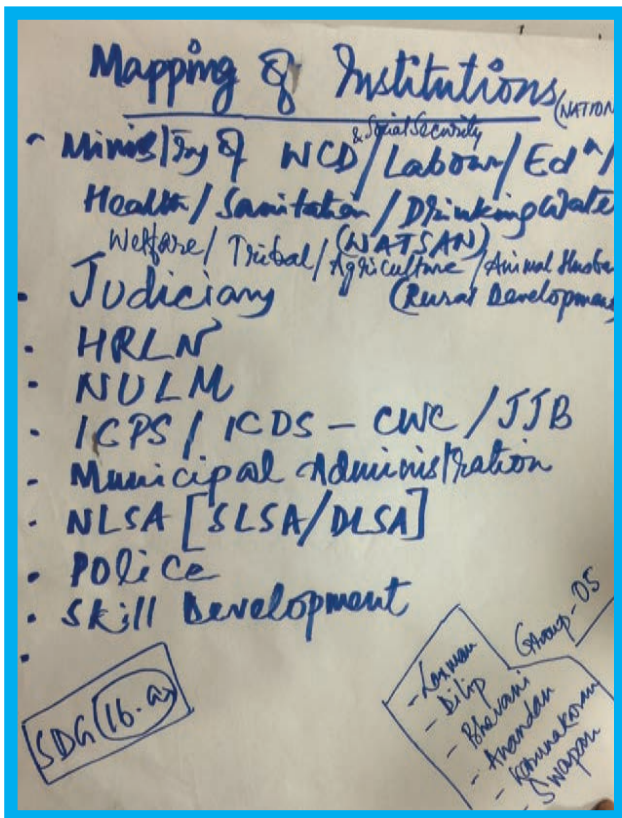 Mapping of Institutions (NATION
- Ministry of WCD/Labour & Social Security/Edn/
Health/Sanitation/Drinking Wate
Welfare/Tribal/(WATSAN)
Agriculture/Animal Husba
(Rural Development)
• Judiciary
• HRLN
• NULM
• ICPS/ICDS - CWC/JJB
• Municipal Administration
• NLSA [SLSA/DLSA]
• Police
• Skill Development
SDG (16.a)
Group-05
- Laxman
- Dilip
- Bhavani
- Anandan
- Karunakoran
- Swapan